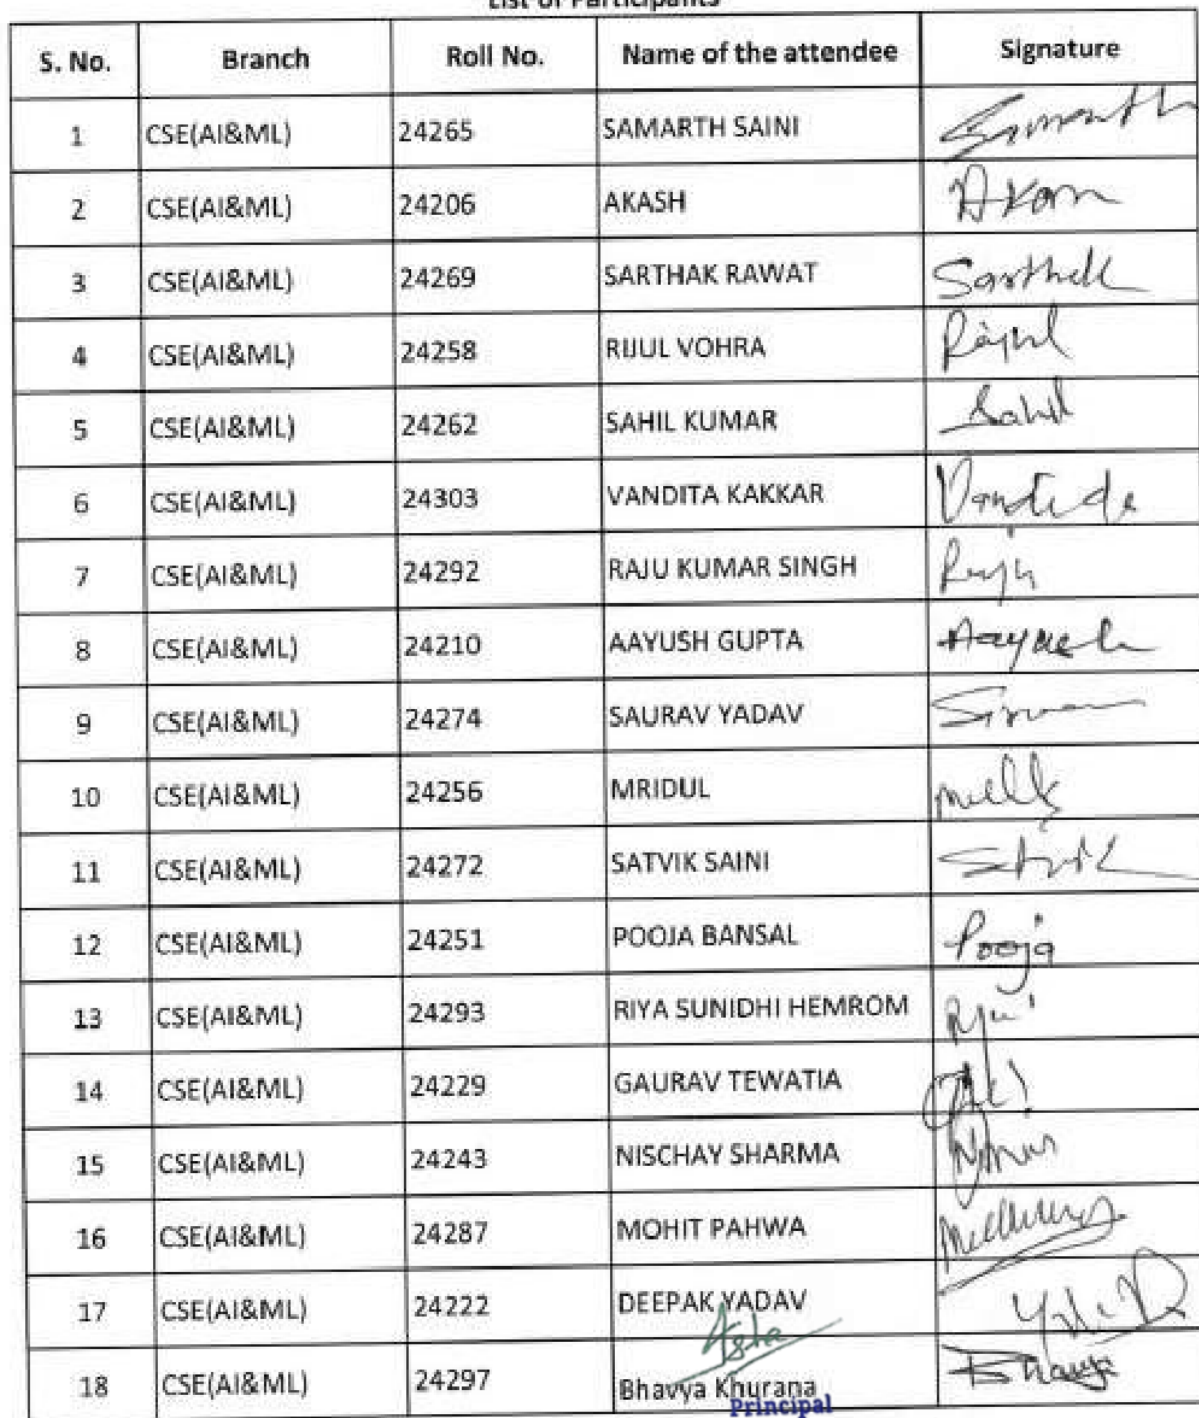 List of Participants
S. No. Branch Roll No. Name of the attendee Signature
1 CSE(AI&ML) 24265 SAMARTH SAINI Samarth
2 CSE(AI&ML) 24206 AKASH
3 CSE(AI&ML) 24269 SARTHAK RAWAT
4 CSE(AI&ML) 24258 RIJUL VOHRA
5 CSE(AI&ML) 24262 SAHIL KUMAR Sahil
6 CSE(AI&ML) 24303 VANDITA KAKKAR
7 CSE(AI&ML) 24292 RAJU KUMAR SINGH
8 CSE(AI&ML) 24210 AAYUSH GUPTA Aayush
9 CSE(AI&ML) 24274 SAURAV YADAV
10 CSE(AI&ML) 24256 MRIDUL
11 CSE(AI&ML) 24272 SATVIK SAINI
12 CSE(AI&ML) 24251 POOJA BANSAL Pooja
13 CSE(AI&ML) 24293 RIYA SUNIDHI HEMROM
14 CSE(AI&ML) 24229 GAURAV TEWATIA
15 CSE(AI&ML) 24243 NISCHAY SHARMA
16 CSE(AI&ML) 24287 MOHIT PAHWA
17 CSE(AI&ML) 24222 DEEPAK YADAV
18 CSE(AI&ML) 24297 Bhavya Khurana Bhavya
Principal